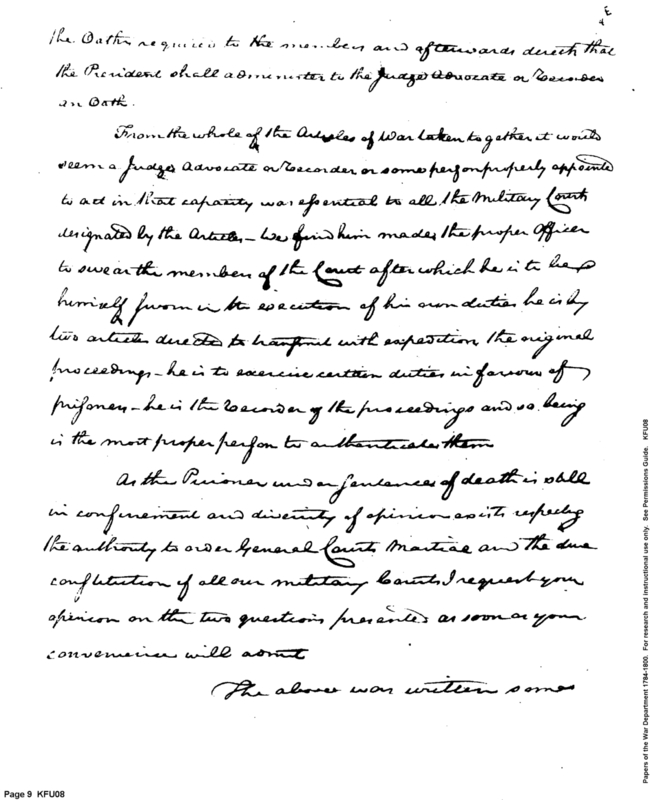 the Oaths required to the members and afterwards directs that
the President shall administer to the Judge Advocate or Recorder
an Oath.
From the whole of the Articles of War taken together it would
seem a Judge Advocate or Recorder or some person properly appointed
to act in that capacity was essential to all the Military Courts
designated by the Articles - We find him made the proper Officer
to swear the members of the Court after which he is to be
himself sworn in the execution of his own duties he is by
two articles directed to transmit with expedition the original
proceedings - he is to exercise certain duties in favour of
prisoners - he is the Recorder of the proceedings and so being
is the most proper person to authenticate them
As the Prisoner under sentence of death is still
in confinement and diversity of opinion exists respecting
the authority to order General Courts Martial and the due
constitution of all our military Courts I request your
opinion on the two questions presented as soon as your
convenience will admit
The above was written some
Page 9 KFU08
Papers of the War Department 1784-1800. For research and instructional use only. See Permissions Guide. KFU08